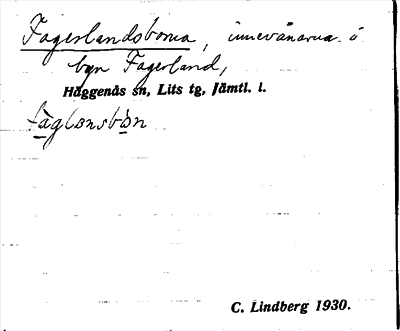 Fagerlandsborna, innevånarna i
byn Fagerland,
Häggenås sn, Lits tg, Jämtl. l.
fàglənsbòn
C. Lindberg 1930.